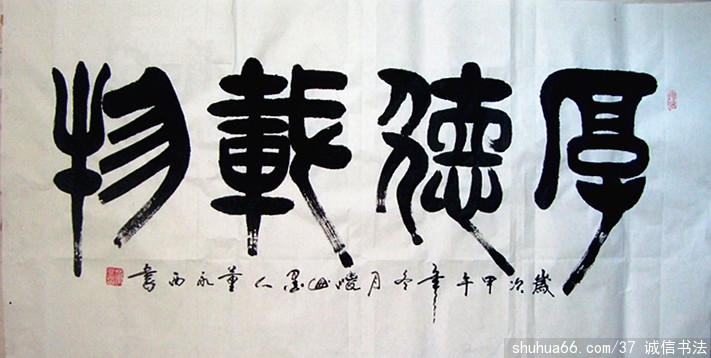 厚德載物
歲次甲午年冬月崚山墨人董永西書
shuhua66.com/37 诚信书法